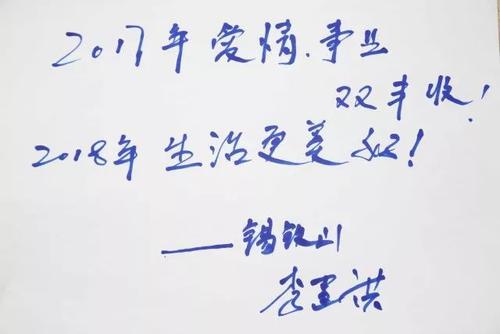 2017年爱情、事业
双丰收！
2018年生活更美好！
——锡铁山
李星洪